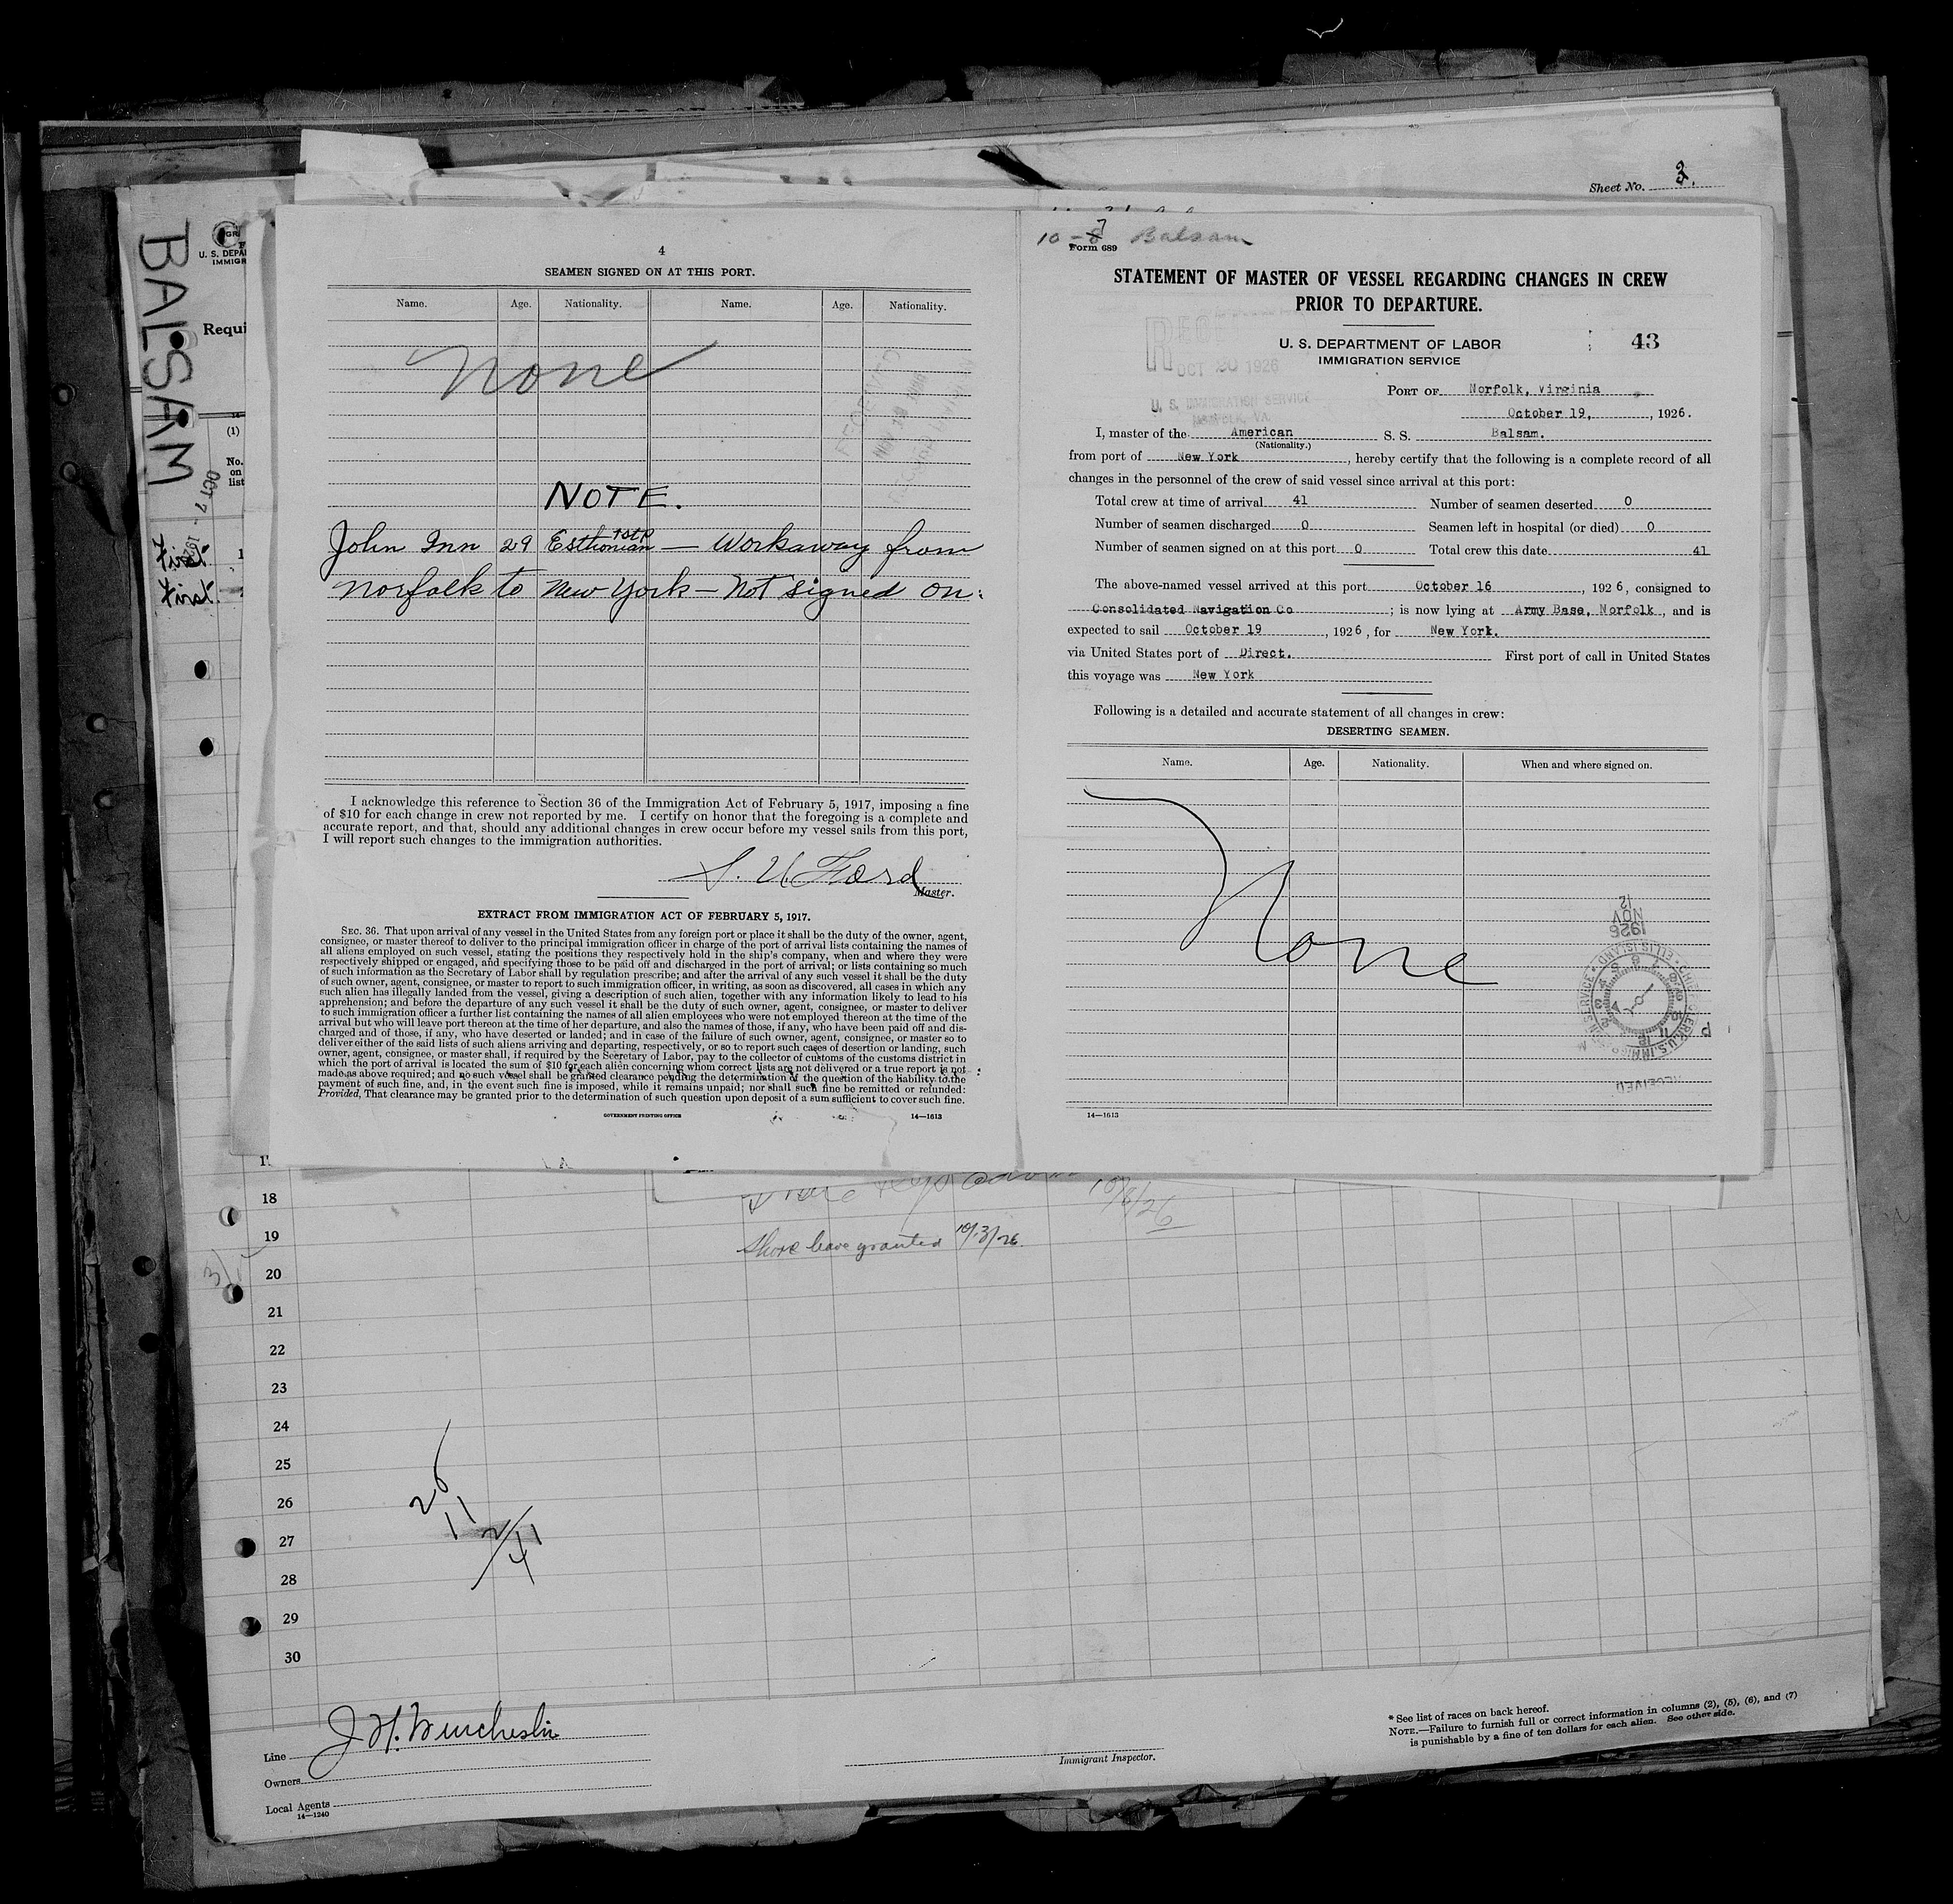 Sheet No. 3.
BALSAM
OCT 7 - 1926
U. S. DEPA
IMMIGR
Requi
(1)
No.
on
list
First 1
First
4
SEAMEN SIGNED ON AT THIS PORT.
Name. Age. Nationality. Name. Age. Nationality.
None
NOTE.
John Inn 29 Esthonian — Workaway from
Norfolk to New York — Not signed on.
I acknowledge this reference to Section 36 of the Immigration Act of February 5, 1917, imposing a fine
of $10 for each change in crew not reported by me. I certify on honor that the foregoing is a complete and
accurate report, and that, should any additional changes in crew occur before my vessel sails from this port,
I will report such changes to the immigration authorities.
S. U. Ford
Master.
EXTRACT FROM IMMIGRATION ACT OF FEBRUARY 5, 1917.
SEC. 36. That upon arrival of any vessel in the United States from any foreign port or place it shall be the duty of the owner, agent,
consignee, or master thereof to deliver to the principal immigration officer in charge of the port of arrival lists containing the names of
all aliens employed on such vessel, stating the positions they respectively hold in the ship's company, when and where they were
respectively shipped or engaged, and specifying those to be paid off and discharged in the port of arrival; or lists containing so much
of such information as the Secretary of Labor shall by regulation prescribe; and after the arrival of any such vessel it shall be the duty
of such owner, agent, consignee, or master to report to such immigration officer, in writing, as soon as discovered, all cases in which any
such alien has illegally landed from the vessel, giving a description of such alien, together with any information likely to lead to his
apprehension; and before the departure of any such vessel it shall be the duty of such owner, agent, consignee, or master to deliver
to such immigration officer a further list containing the names of all alien employees who were not employed thereon at the time of the
arrival but who will leave port thereon at the time of her departure, and also the names of those, if any, who have been paid off and dis-
charged and of those, if any, who have deserted or landed; and in case of the failure of such owner, agent, consignee, or master so to
deliver either of the said lists of such aliens arriving and departing, respectively, or so to report such cases of desertion or landing, such
owner, agent, consignee, or master shall, if required by the Secretary of Labor, pay to the collector of customs of the customs district in
which the port of arrival is located the sum of $10 for each alien concerning whom correct lists are not delivered or a true report is not
made as above required; and no such vessel shall be granted clearance pending the determination of the question of the liability to the
payment of such fine, and, in the event such fine is imposed, while it remains unpaid; nor shall such fine be remitted or refunded:
Provided, That clearance may be granted prior to the determination of such question upon deposit of a sum sufficient to cover such fine.
GOVERNMENT PRINTING OFFICE 14—1613
10 - 7 Balsam
Form 689
STATEMENT OF MASTER OF VESSEL REGARDING CHANGES IN CREW
PRIOR TO DEPARTURE.
U. S. DEPARTMENT OF LABOR 43
IMMIGRATION SERVICE
OCT 20 1926
U. S. IMMIGRATION SERVICE
NORFOLK, VA.
PORT OF Norfolk, Virginia
October 19, , 1926.
I, master of the American S. S. Balsam.
(Nationality.)
from port of New York , hereby certify that the following is a complete record of all
changes in the personnel of the crew of said vessel since arrival at this port:
Total crew at time of arrival 41 Number of seamen deserted 0
Number of seamen discharged 0 Seamen left in hospital (or died) 0
Number of seamen signed on at this port 0 Total crew this date 41
The above-named vessel arrived at this port October 16 , 1926, consigned to
Consolidated Navigation Co ; is now lying at Army Base, Norfolk , and is
expected to sail October 19 , 1926, for New York.
via United States port of Direct. First port of call in United States
this voyage was New York
Following is a detailed and accurate statement of all changes in crew:
DESERTING SEAMEN.
Name. Age. Nationality. When and where signed on.
None
1926
NOV
12
ELLIS ISLAND
RECEIVED
14—1613
18
19 Shore leave granted 10/3/26
20
21
22
23
24
25
26
27
28
29
30
26
11
2/41
J. H. Winchester
Line
Owners
Local Agents
14—1240
Immigrant Inspector.
* See list of races on back hereof.
NOTE.—Failure to furnish full or correct information in columns (2), (5), (6), and (7)
is punishable by a fine of ten dollars for each alien. See other side.